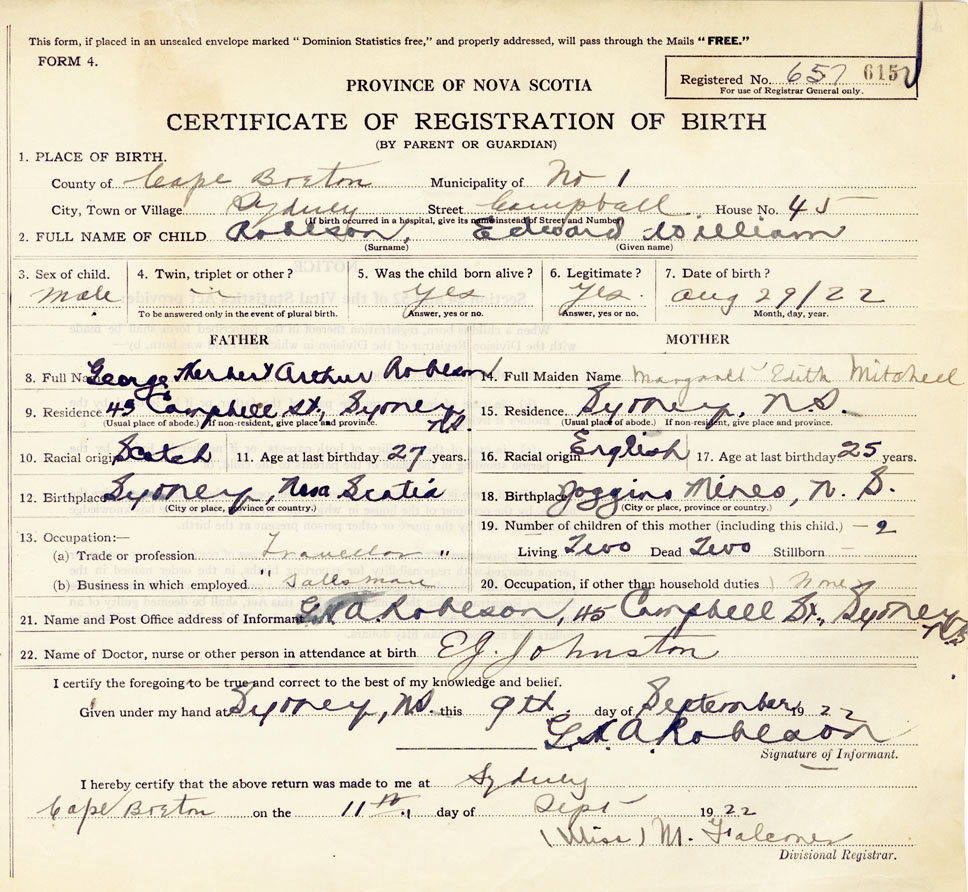 This form, if placed in an unsealed envelope marked "Dominion Statistics free," and properly addressed, will pass through the Mails "FREE."
FORM 4.
Registered No. 657 6152
For use of Registrar General only.
PROVINCE OF NOVA SCOTIA
CERTIFICATE OF REGISTRATION OF BIRTH
(BY PARENT OR GUARDIAN)
1. PLACE OF BIRTH.
County of Cape Breton Municipality of No 1
City, Town or Village Sydney Street Campbell House No. 45
(If birth occurred in a hospital, give its name instead of Street and Number)
2. FULL NAME OF CHILD Robleson, Edward William
(Surname) (Given name)
3. Sex of child. 4. Twin, triplet or other? 5. Was the child born alive? 6. Legitimate? 7. Date of birth?
Male Yes Yes. Aug 29/22
To be answered only in the event of plural birth. Answer, yes or no. Answer, yes or no. Month, day, year.
FATHER MOTHER
8. Full Na George Herbert Arthur Robleson 14. Full Maiden Name Margaret Edith Mitchell
9. Residence 45 Campbell St., Sydney N.S. 15. Residence. Sydney, N.S.
(Usual place of abode.) If non-resident, give place and province. (Usual place of abode.) If non-resident, give place and province.
10. Racial origin Scotch 11. Age at last birthday 27 years. 16. Racial origin English 17. Age at last birthday 25 years.
12. Birthplace Sydney, Nova Scotia 18. Birthplace Joggins Mines, N. S.
(City or place, province or country.) (City or place, province or country.)
13. Occupation:— 19. Number of children of this mother (including this child.) — 2
(a) Trade or profession Traveller " Living Two Dead Two Stillborn —
(b) Business in which employed " Salesman 20. Occupation, if other than household duties None
21. Name and Post Office address of Informan G.H.A. Robleson, 45 Campbell St., Sydney N.S.
22. Name of Doctor, nurse or other person in attendance at birth E.J. Johnston
I certify the foregoing to be true and correct to the best of my knowledge and belief.
Given under my hand at Sydney, N.S. this 9th. day of September 1922
G.H.A. Robleson
Signature of Informant.
I hereby certify that the above return was made to me at Sydney
Cape Breton on the 11th day of Sept 1922
(Miss) M. Falconer
Divisional Registrar.